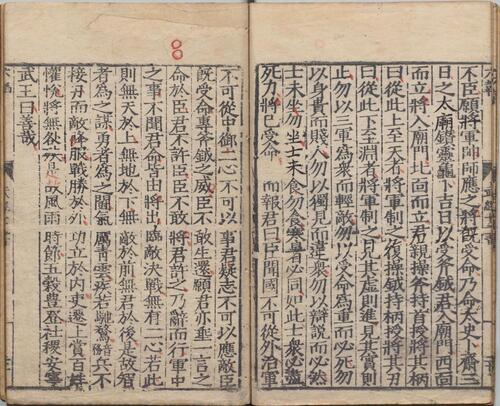 不臣願將軍帥師應之將既受命乃命太史卜齋三
日之太廟鑽靈龜卜吉日以受斧鉞君入廟門西面
而立將入廟門北面而立君親操斧持首授將其柄
曰從此上至天者將軍制之復操鉞持柄授將其刃
曰從此下至淵者將軍制之見其虛則進見其實則
止勿以三軍爲衆而輕敵勿以受命爲重而必死勿
以身貴而賤人勿以獨見而違衆勿以辯說
士未坐勿坐士未食勿食寒暑必同如此士衆必盡
死力將已受命而報君曰臣聞國不可從外治軍
不可從中御二心不可以事君疑志不可以應敵臣
既受命專斧鉞之威臣不敢生還願君亦垂一言之
命於臣君不許臣臣不敢將君許之乃辭而行軍中
之事不聞君命皆由將出臨敵決戰無有二心若此
則無天於上無地於下無敵於前無君於後是故智
者爲之謀勇者爲之鬬氣厲青雲疾若馳騖兵不
接刃而敵降服戰勝於外功立於內吏遷上賞百姓
懽悅將無咎殃是故風雨時節五穀豐登社稷安寧
武王曰善哉
8